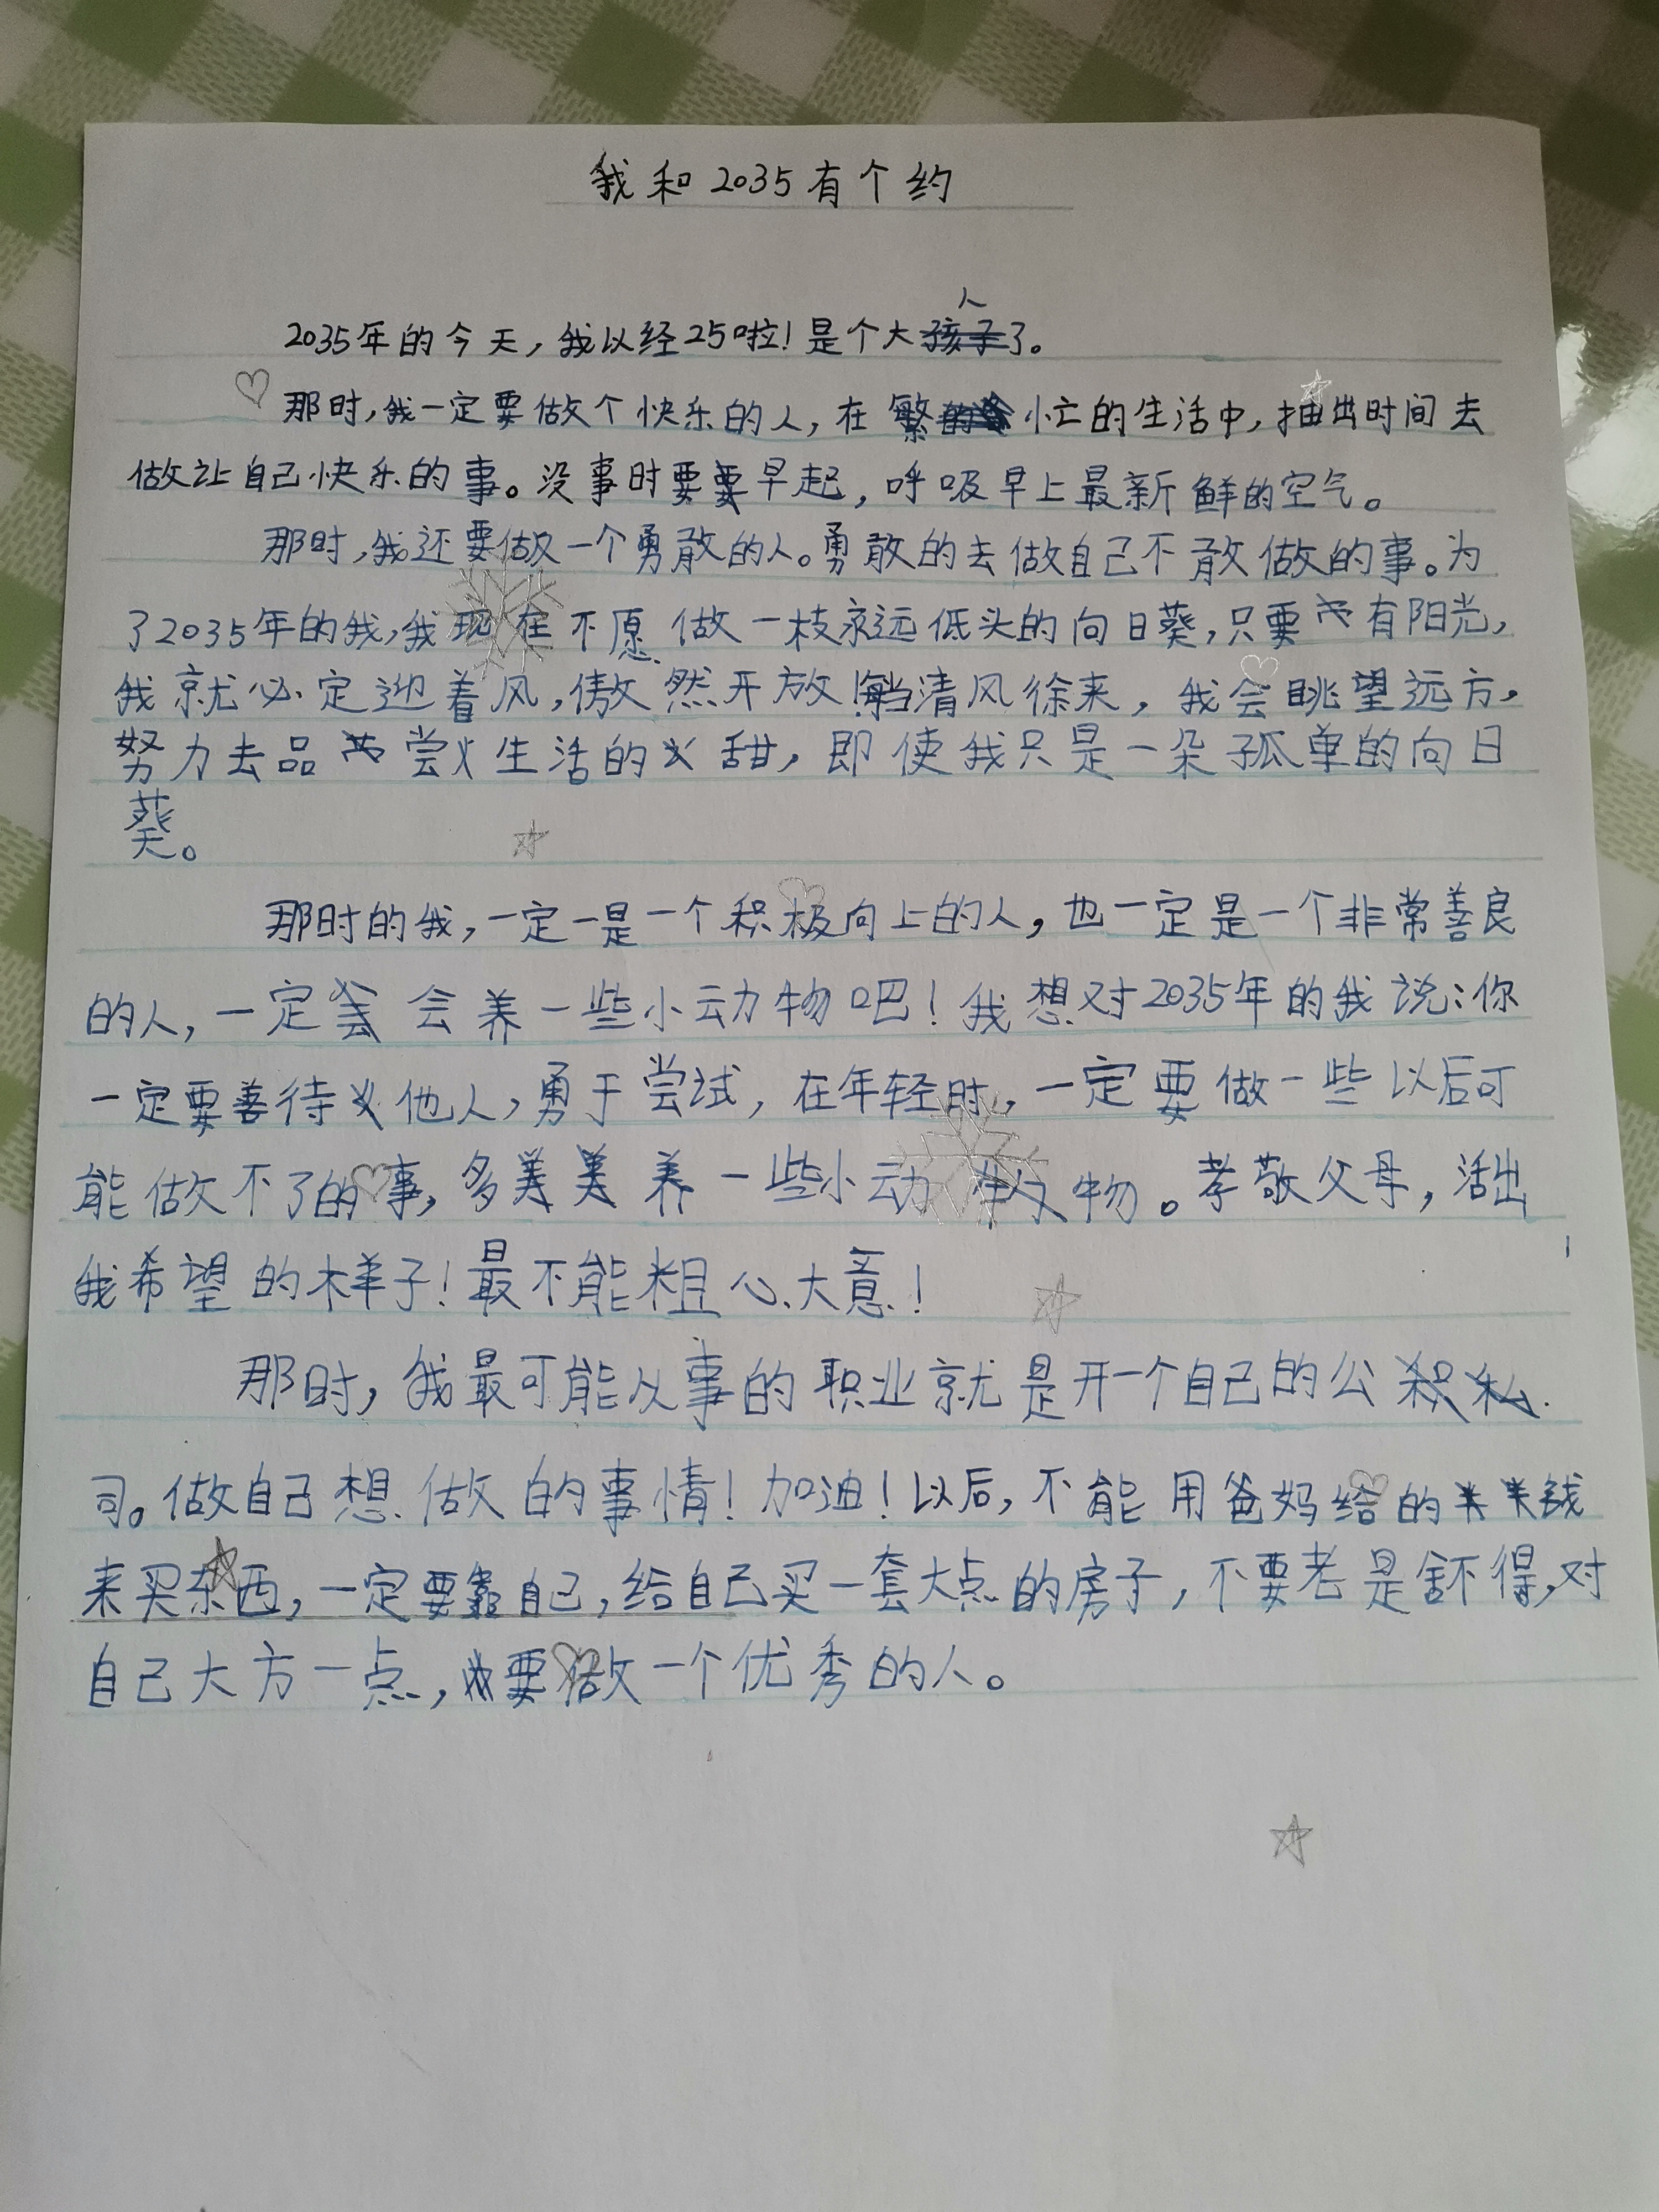 我和2035有个约
2035年的今天，我以经25啦！是个大人了。
那时，我一定要做个快乐的人，在繁忙的生活中，抽出时间去
做让自己快乐的事。没事时要要早起，呼吸早上最新鲜的空气。
那时，我还要做一个勇敢的人。勇敢的去做自己不敢做的事。为
了2035年的我，我现在不愿做一枝永远低头的向日葵，只要有阳光，
我就必定迎着风，傲然开放！当清风徐来，我会眺望远方，
努力去品尝生活的甜，即使我只是一朵孤单的向日
葵。
那时的我，一定一是一个积极向上的人，也一定是一个非常善良
的人，一定会养一些小动物吧！我想对2035年的我说：你
一定要善待他人，勇于尝试，在年轻时，一定要做一些以后可
能做不了的事，多养一些小动物。孝敬父母，活出
我希望的样子！最不能粗心大意！
那时，我最可能从事的职业就是开一个自己的公
司。做自己想做的事情！加油！以后，不能用爸妈给的钱
来买东西，一定要靠自己，给自己买一套大点的房子，不要老是舍不得，对
自己大方一点，要做一个优秀的人。